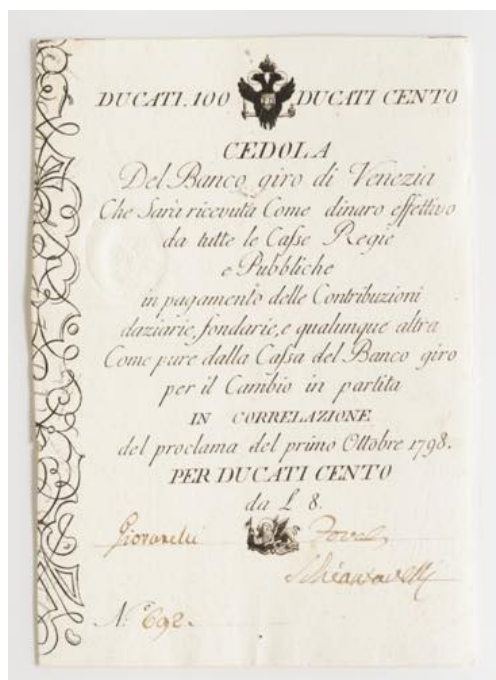 DUCATI. 100 DUCATI CENTO
CEDOLA
Del Banco giro di Venezia
Che Sarà ricevuta Come dinaro effettivo
da tutte le Casse Regie
e Pubbliche
in pagamento delle Contribuzioni
daziarie, fondarie, e qualunque altra
Come pure dalla Cassa del Banco giro
per il Cambio in partita
IN CORRELAZIONE
del proclama del primo Ottobre 1798.
PER DUCATI CENTO
da L 8.
Giovanelli
N.º 692.